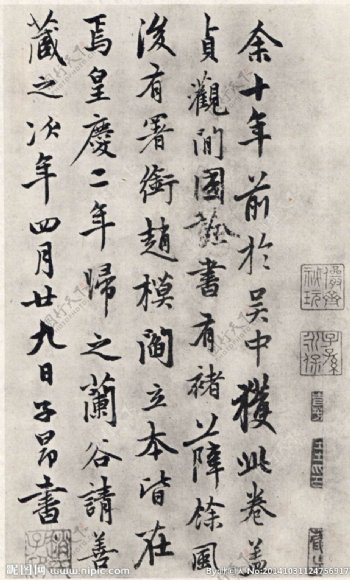 余十年前於吳中獲此卷蓋
貞觀間國詮書有褚阝庫徐風
後有署銜趙模閻立本皆在
焉皇慶二年歸之蘭谷請善
藏之次年四月廿九日子昂書
子子孫
永保
昵图网 www.nipic.com
By:叶问人 No:20141031124756917